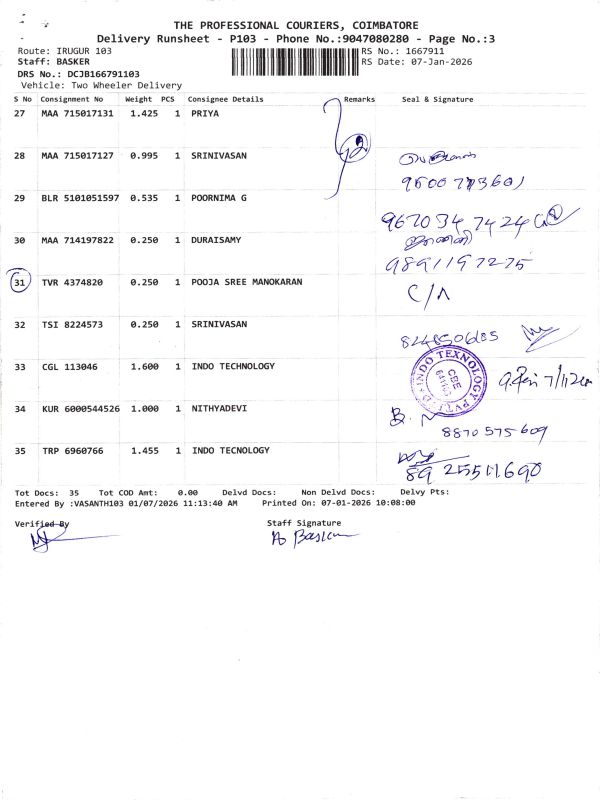 THE PROFESSIONAL COURIERS, COIMBATORE
Delivery Runsheet - P103 - Phone No.:9047080280 - Page No.:3
Route: IRUGUR 103 RS No.: 1667911
Staff: BASKER RS Date: 07-Jan-2026
DRS No.: DCJB166791103
Vehicle: Two Wheeler Delivery
S No Consignment No Weight PCS Consignee Details Remarks Seal & Signature
27 MAA 715017131 1.425 1 PRIYA
28 MAA 715017127 0.995 1 SRINIVASAN
29 BLR 5101051597 0.535 1 POORNIMA G
967034 7424
30 MAA 714197822 0.250 1 DURAISAMY
9891197275
31 TVR 4374820 0.250 1 POOJA SREE MANOKARAN
32 TSI 8224573 0.250 1 SRINIVASAN
33 CGL 113046 1.600 1 INDO TECHNOLOGY
INDO TEXNOLOGY PVT. LTD
CBE
34 KUR 6000544526 1.000 1 NITHYADEVI
8870575609
35 TRP 6960766 1.455 1 INDO TECNOLOGY
89 25511690
Tot Docs: 35 Tot COD Amt: 0.00 Delvd Docs: Non Delvd Docs: Delvy Pts:
Entered By :VASANTH103 01/07/2026 11:13:40 AM Printed On: 07-01-2026 10:08:00
Verified By Staff Signature